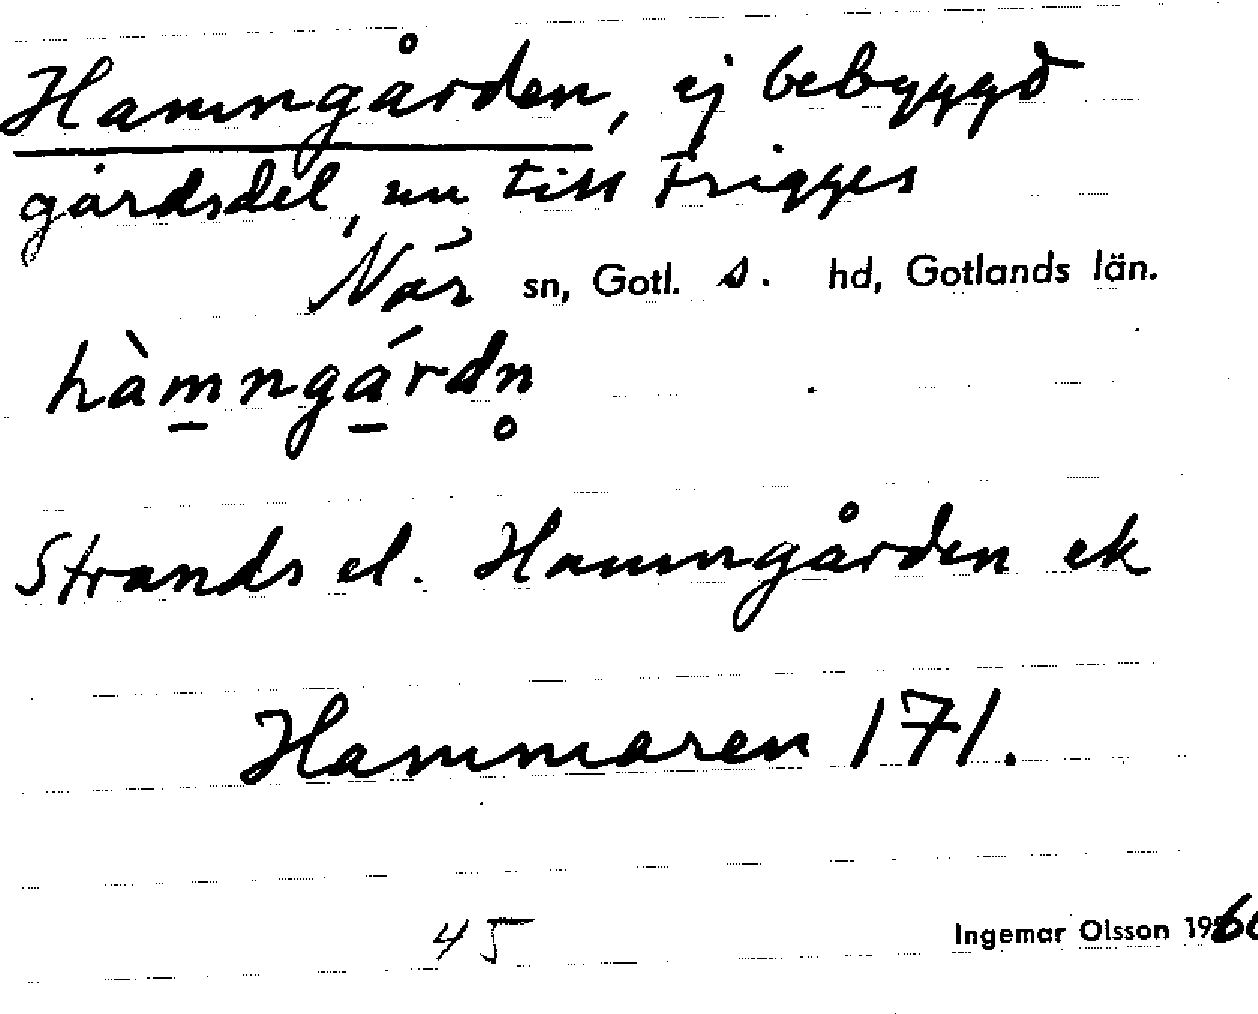 Hamngården, ej bebyggd
gårdsdel, nu till Frigges
När sn, Gotl. s. hd, Gotlands län.
hàmngárdn̥
Strands el. Hamngården ek
Hammaren 171.
45
Ingemar Olsson 1960